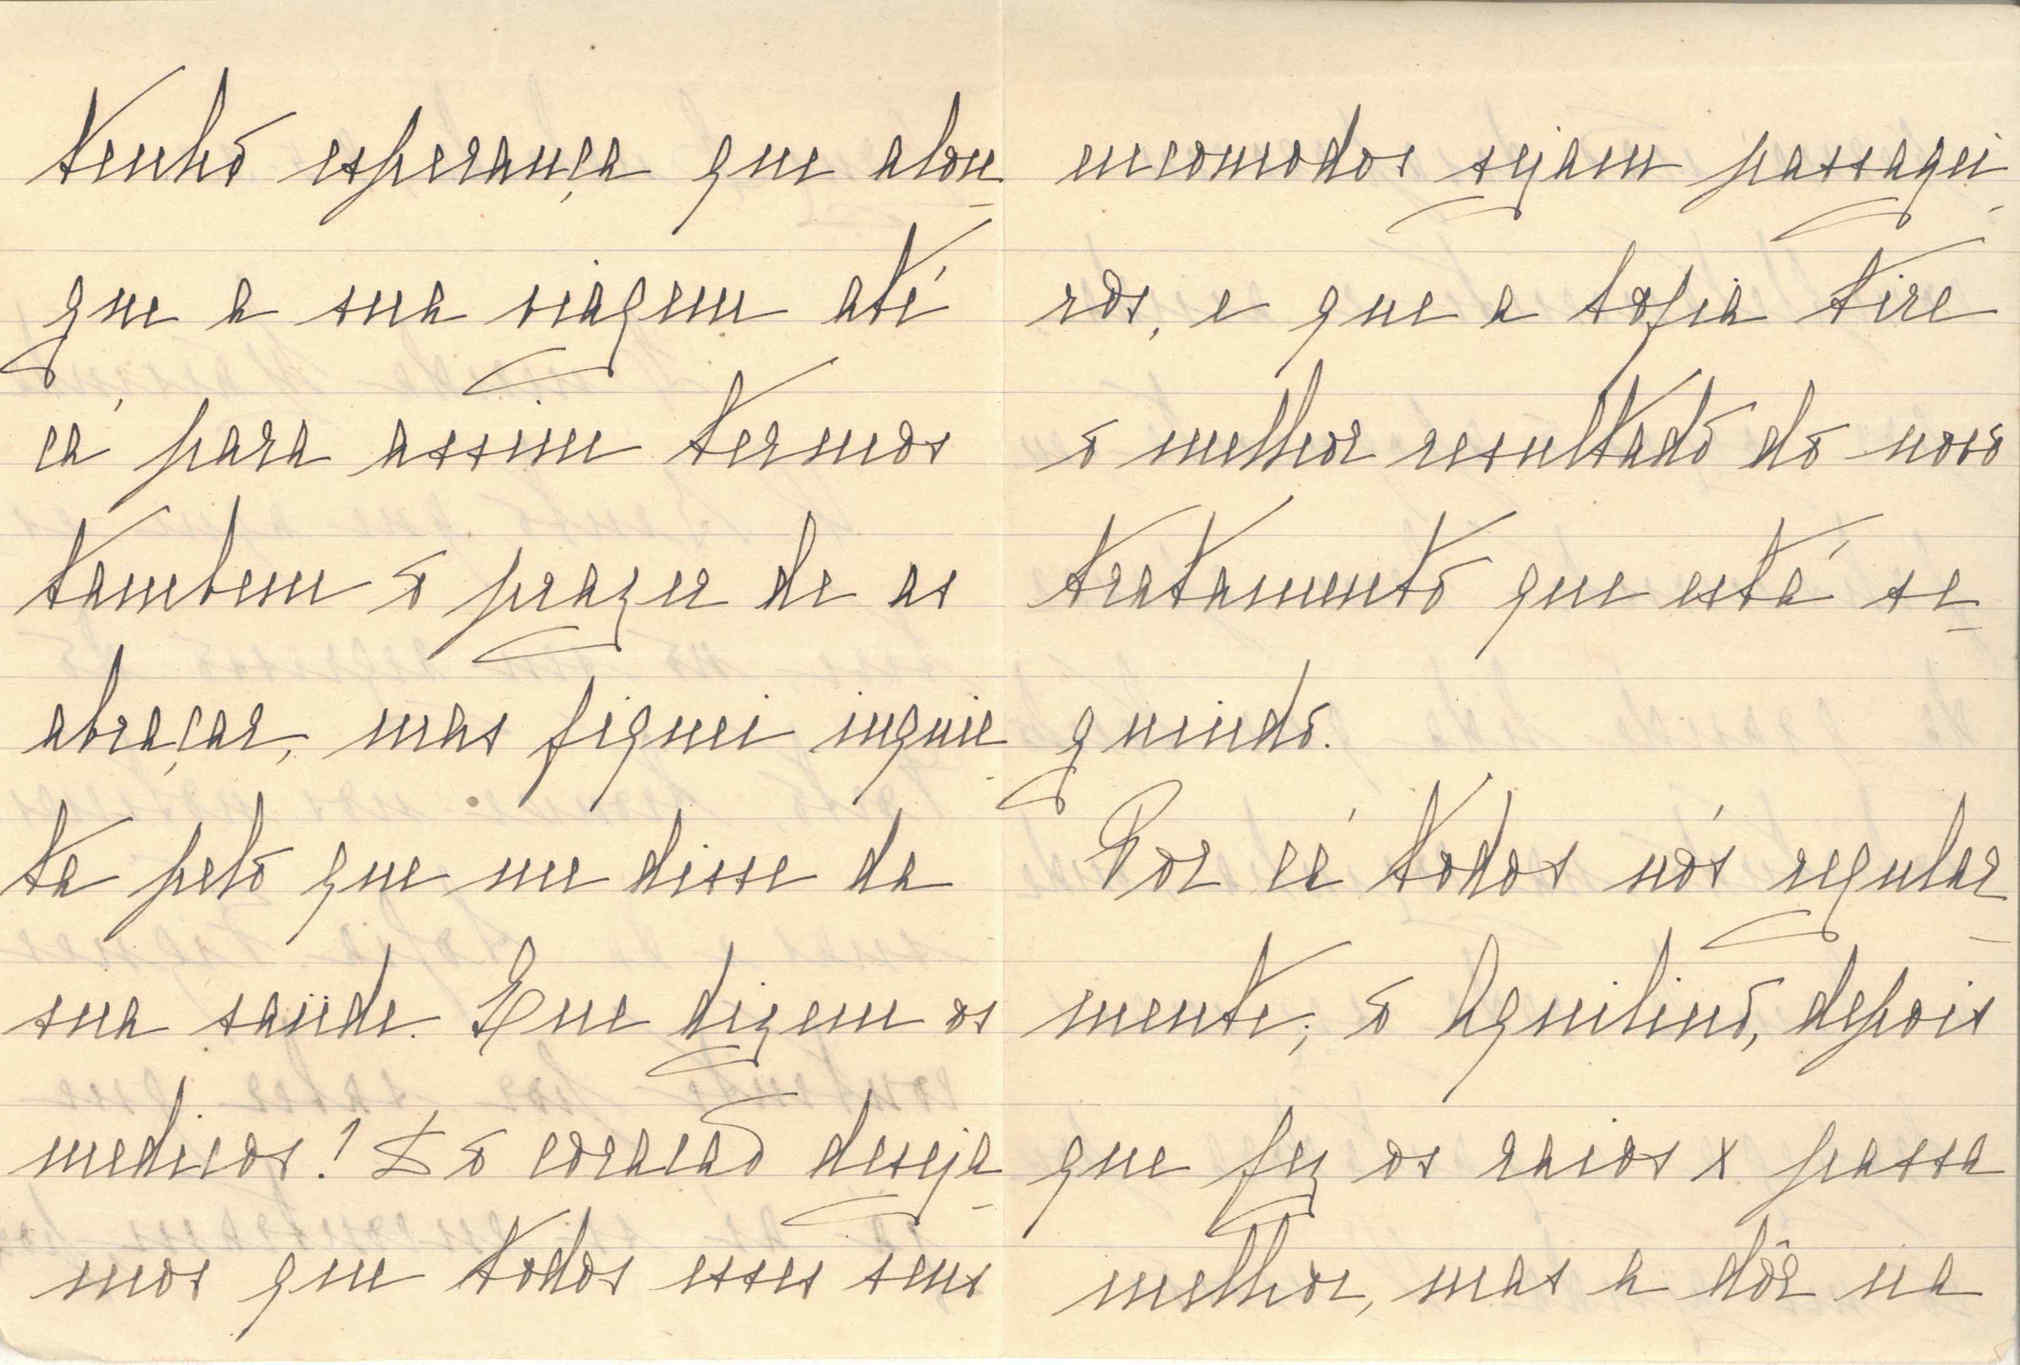 tenho esperança que alon-
gue a sua viagem até
cá para assim termos
tambem o prazer de as
abraçar, mas fiquei inquie-
ta pelo que me disse da
sua saúde. Que dizem os
medicos! Do coracão deseja-
mos que todos esses seus
encomodos sejam passagei-
ros, e que a Sofia tire
o melhor resultado do novo
tratamento que está se-
guindo.
Por cá todos nós regular-
mente; o Aquilino, depois
que fez os raios x passa
melhor, mas a dôr na